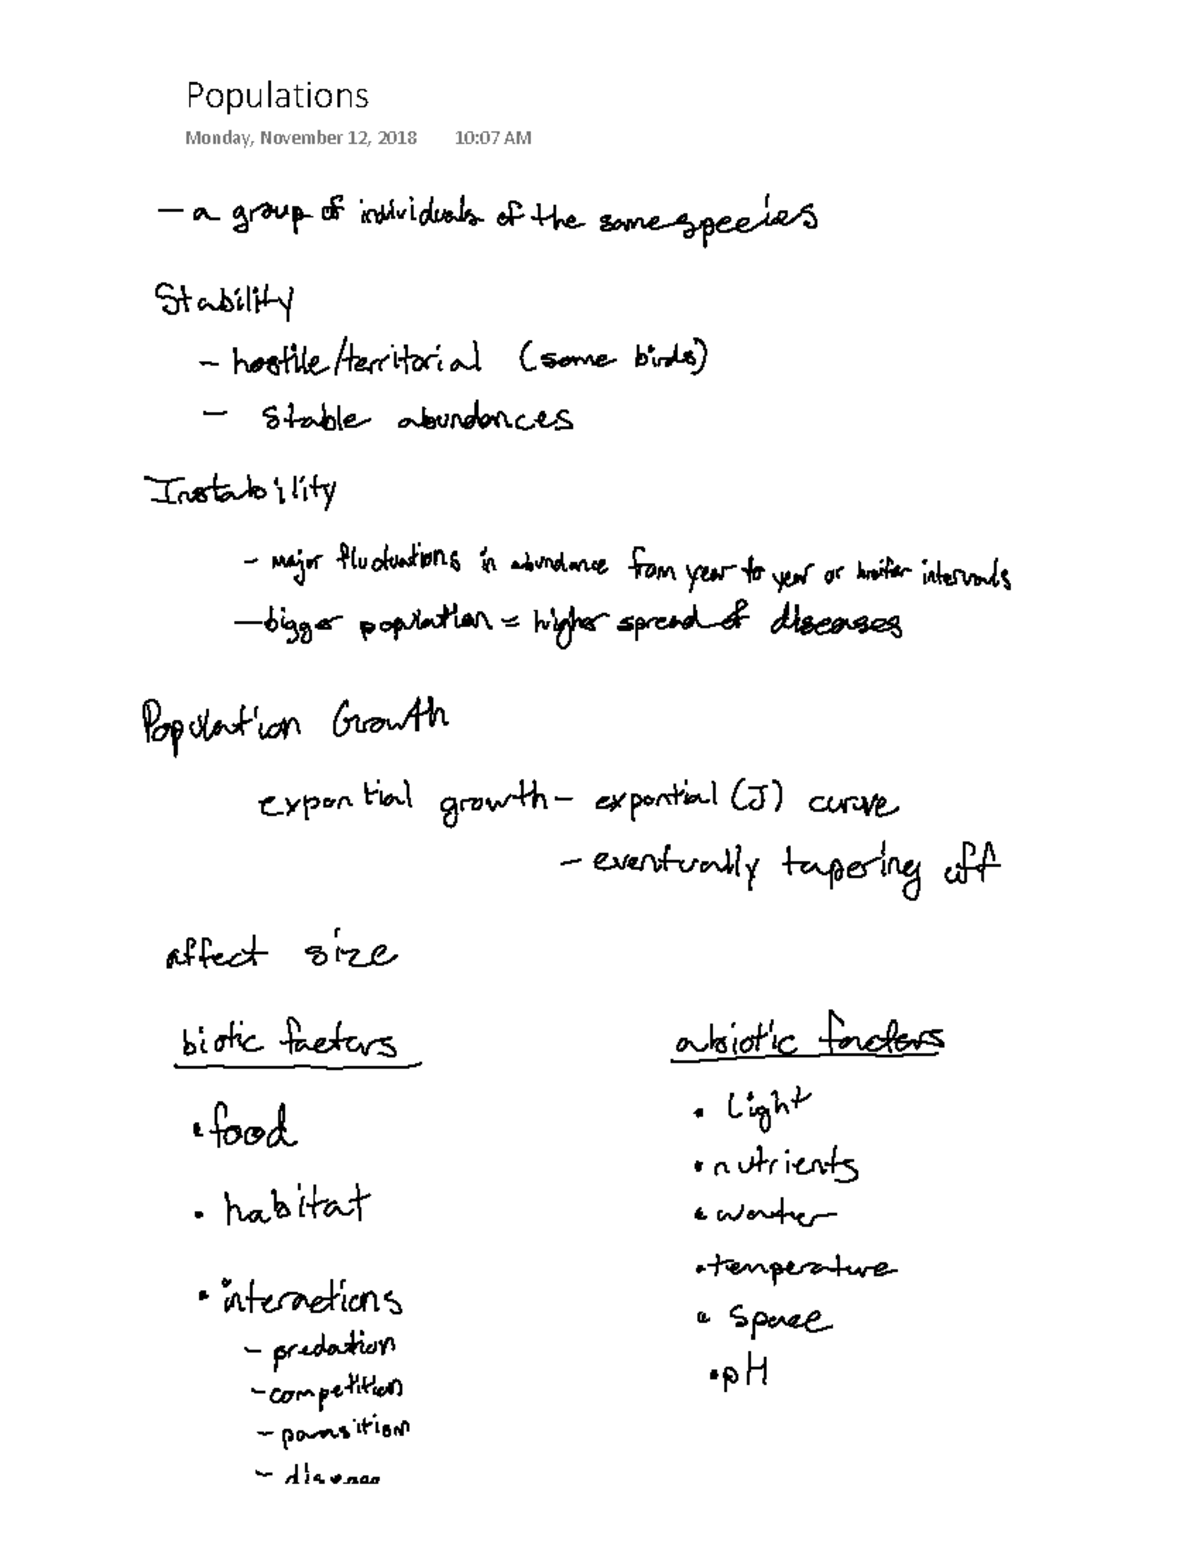 Populations
Monday, November 12, 2018 10:07 AM
- a group of individuals of the same species
Stability
- hostile/territorial (some birds)
- stable abundances
Instability
- major fluctuations in abundance from year to year or intervals
- bigger population = higher spread of diseases
Population Growth
expontial growth - expontial (J) curve
- eventually tapering off
affect size
biotic factors
• food
• habitat
• interactions
- predation
- competition
- parasitism
- disease
abiotic factors
• Light
• nutrients
• water
• temperature
• space
• pH